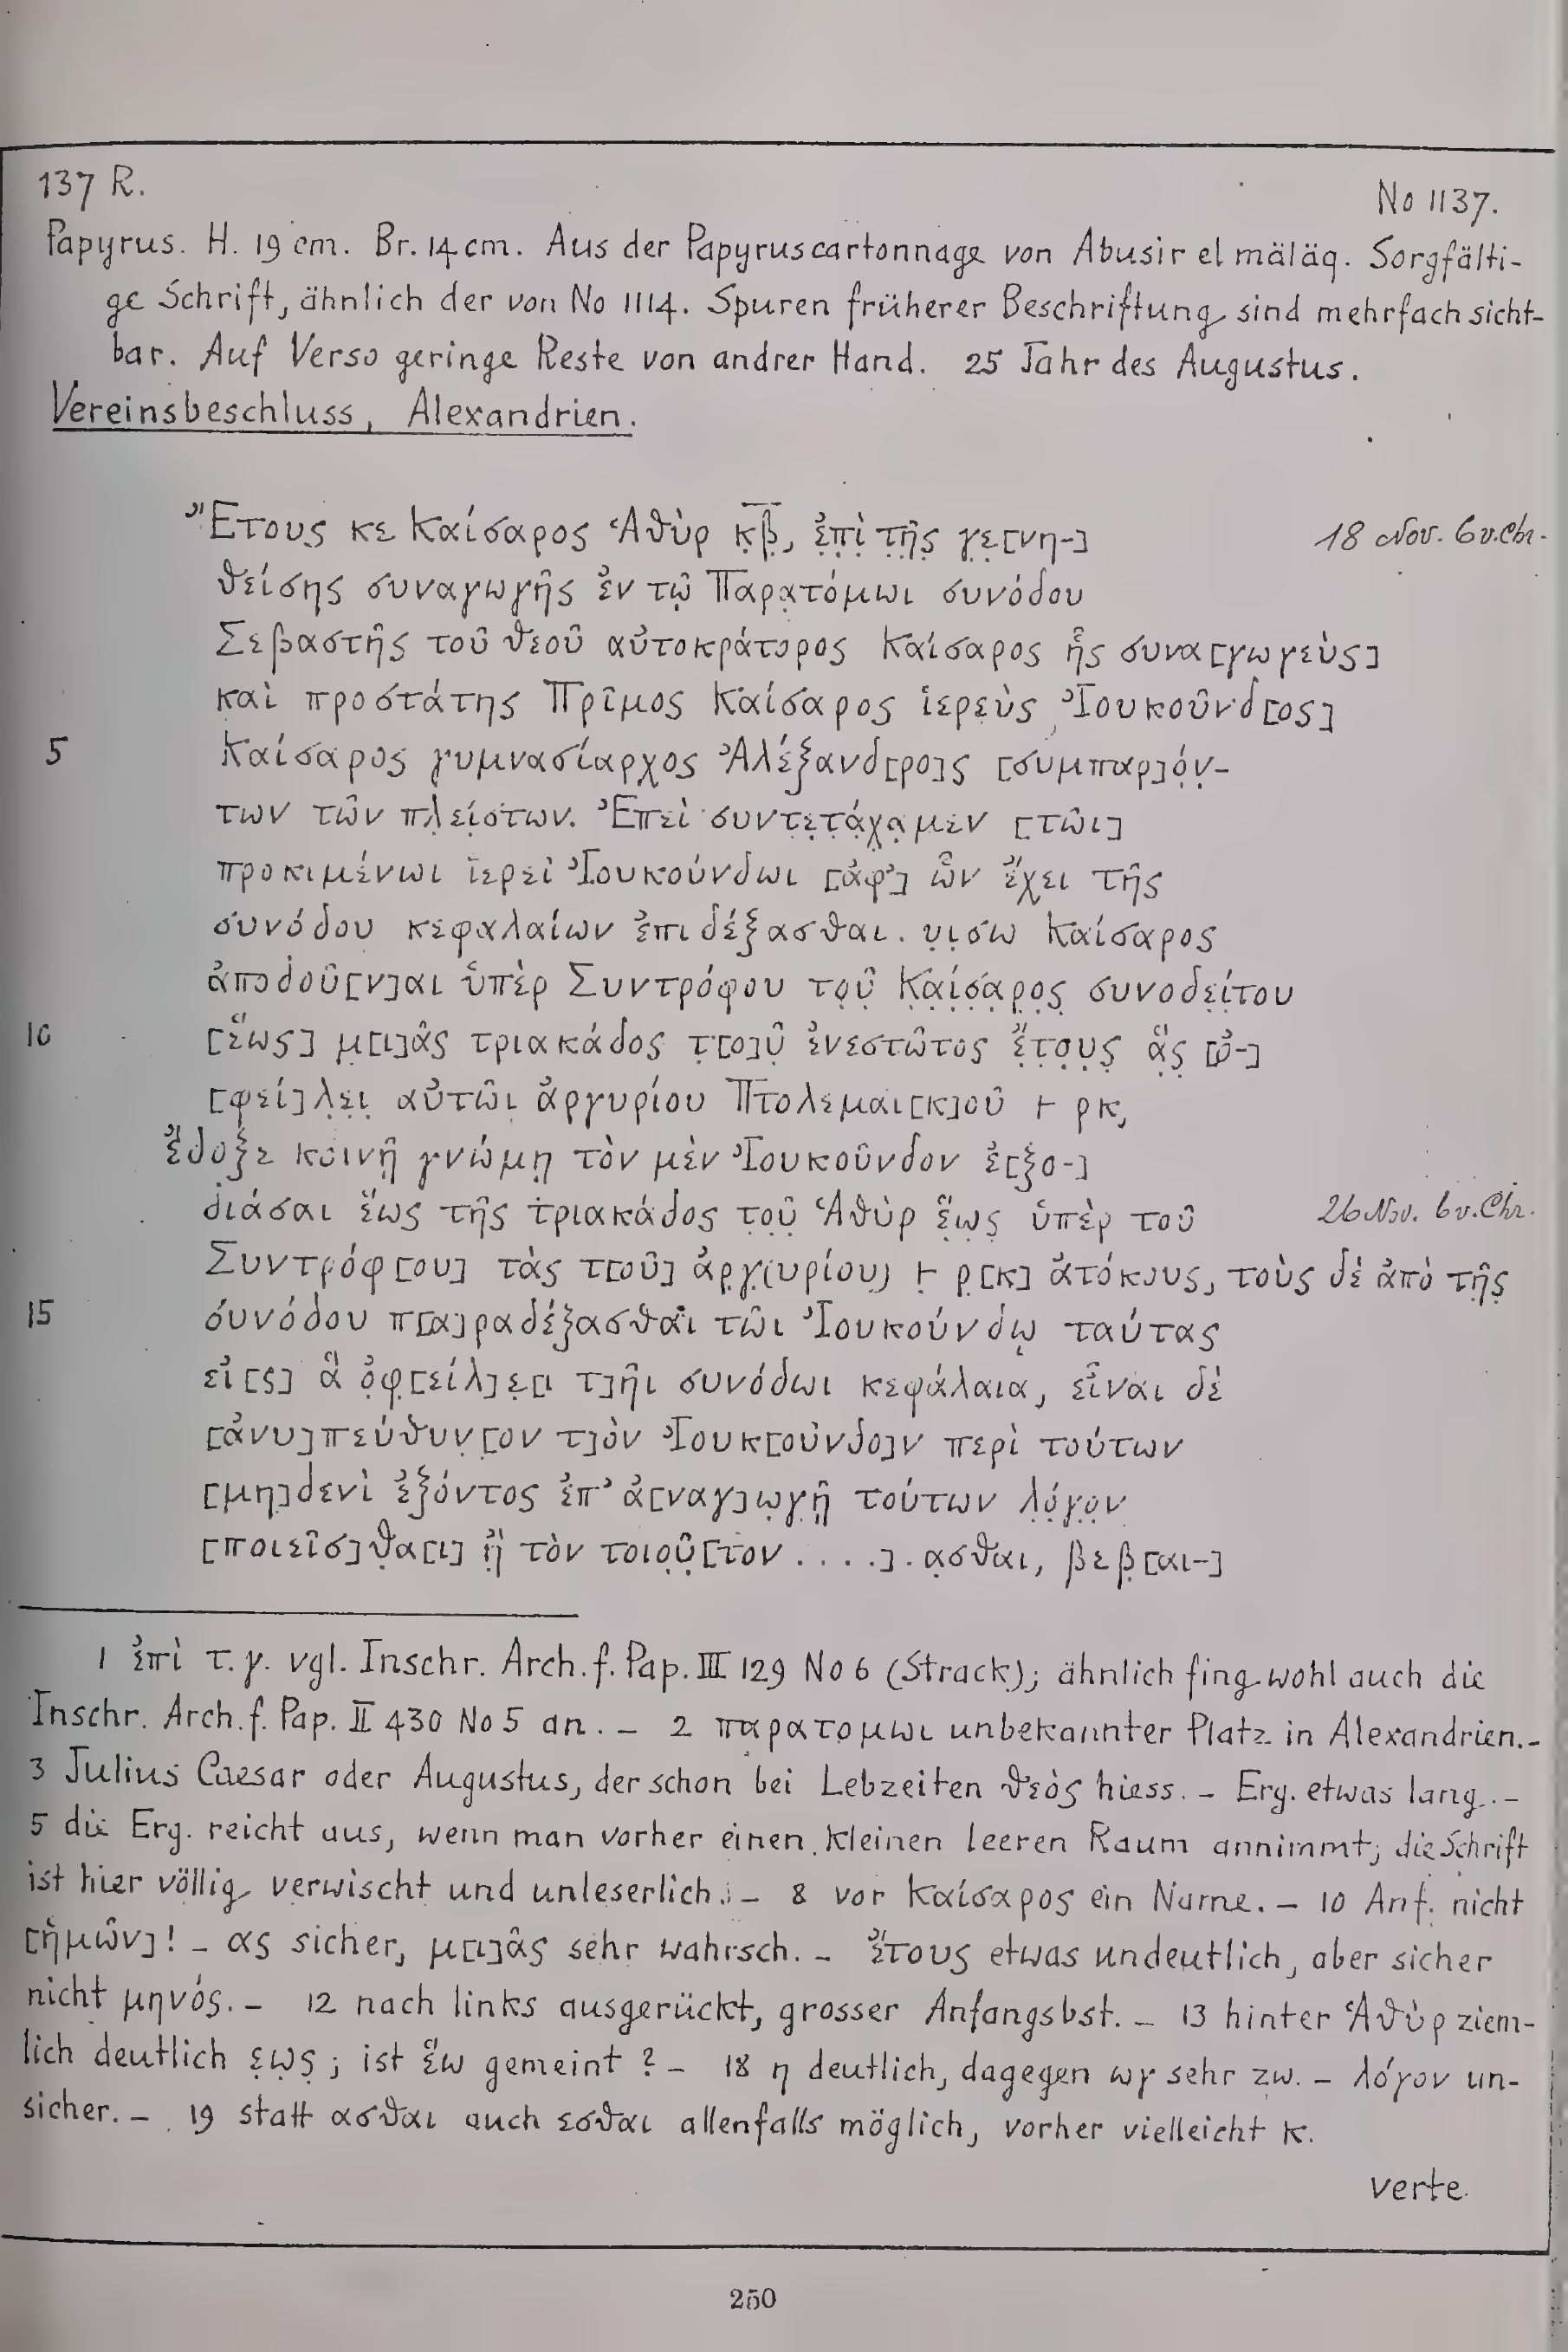 137 R.
No 1137.
Papyrus. H. 19 cm. Br. 14 cm. Aus der Papyruscartonnage von Abusir el mäläq. Sorgfälti-
ge Schrift, ähnlich der von No 1114. Spuren früherer Beschriftung sind mehrfach sicht-
bar. Auf Verso geringe Reste von andrer Hand. 25 Jahr des Augustus.
Vereinsbeschluss, Alexandrien.
Ἔτους κε Καίσαρος Ἁθὺρ κ̣̅β̣̅, ἐ̣π̣ὶ̣ τ̣ῆ̣ς̣ γ̣ε̣[νη-] 18 Nov. 6 v. Chr.
θείσης συναγωγῆς ἐν τῷ Παρα̣τόμωι συνόδου
Σεβαστῆς τοῦ θεοῦ αὐτοκράτορος Καίσαρος ἧς συνα[γωγεὺς]
καὶ προστάτης Πρῖμος Καίσαρος ἱερεὺς Ἰουκοῦνδ[ος]
5 Καίσαρος γυμνασίαρχος Ἀλέξανδ[ρο]ς [συμπαρ]ό̣ν̣-
των τῶν πλ̣εί̣στων. Ἐπεὶ συντ̣ε̣τ̣ά̣χ̣α̣μεν [τῶι]
προκιμένωι ἱερεῖ Ἰουκούνδωι [ἀφ’] ὧν ἔχει τῆς
συνόδου κεφαλαίων ἐπιδέξασθαι. υ̣ι̣σω Καίσαρος
ἀποδοῦ[ν]αι ὑπὲρ Συντρόφου το̣ῦ̣ Κ̣α̣ί̣σ̣α̣ρ̣ο̣ς̣ συνοδε̣ί̣του
10 [ἕως] μ̣[ι]ᾶς τριακάδος τ̣[ο]ῦ̣ ἐνεστῶτος ἔ̣τ̣ο̣υ̣ς̣ ἃ̣ς̣ [ὀ-]
[φεί]λ̣ε̣ι̣ αὐτῶι ἀργυρίου Πτολεμαι[κ]οῦ ⊢ ρκ,
ἔδοξε κοινῇ γνώμῃ τὸν μὲν Ἰουκοῦνδον ἐ[ξο-]
διάσαι ἕως τῆς τριακάδος το̣ῦ̣ Ἁθὺρ ἕ̣ω̣ς̣ ὑπὲρ τοῦ 26 Nov. 6 v. Chr.
Συντρόφ[ου] τὰς τ[οῦ] ἀ̣ρ̣γ̣(υρίου) ⊢ ρ̣[κ] ἀτόκους, τοὺς δὲ ἀπὸ τῆ̣ς̣
15 συνόδου π[α]ραδέξασθαι τῶι Ἰουκούνδῳ ταύτας
εἰ[ς] ἃ ὀ̣φ̣[είλ]ε̣[ι τ]ῆι συνόδωι κεφάλαια, εἶναι δὲ
[ἀνυ]πεύθυν̣[ον τ]ὸν Ἰουκ[οῦνδο]ν περὶ τούτων
[μη]δενὶ ἐξόντος ἐπ’ ἀ[ναγ]ω̣γ̣ῇ τούτων λ̣ό̣γ̣ο̣ν̣
[ποιεῖσ]θ̣α[ι] ἢ̣ τὸν τοιο̣ῦ̣[τον . . . .] . α̣σθαι, βεβ̣[αι-]
1 ἐπὶ τ. γ. vgl. Inschr. Arch. f. Pap. III 129 No 6 (Strack); ähnlich fing wohl auch die
Inschr. Arch. f. Pap. II 430 No 5 an. – 2 παρατομωι unbekannter Platz in Alexandrien. –
3 Julius Caesar oder Augustus, der schon bei Lebzeiten θεὸς hiess. – Erg. etwas lang. –
5 die Erg. reicht aus, wenn man vorher einen kleinen leeren Raum annimmt; die Schrift
ist hier völlig verwischt und unleserlich. – 8 vor Καίσαρος ein Name. – 10 Anf. nicht
[ἡμῶν]! – ας sicher, μ[ι]ᾶς sehr wahrsch. – Ἔτους etwas undeutlich, aber sicher
nicht μηνός. – 12 nach links ausgerückt, grosser Anfangsbst. – 13 hinter Ἁθὺρ ziem-
lich deutlich ε̣ω̣ς̣; ist ἕω gemeint? – 18 η deutlich, dagegen ωγ sehr zw. – λόγον un-
sicher. – 19 statt ασθαι auch εσθαι allenfalls möglich, vorher vielleicht κ.
verte.
250